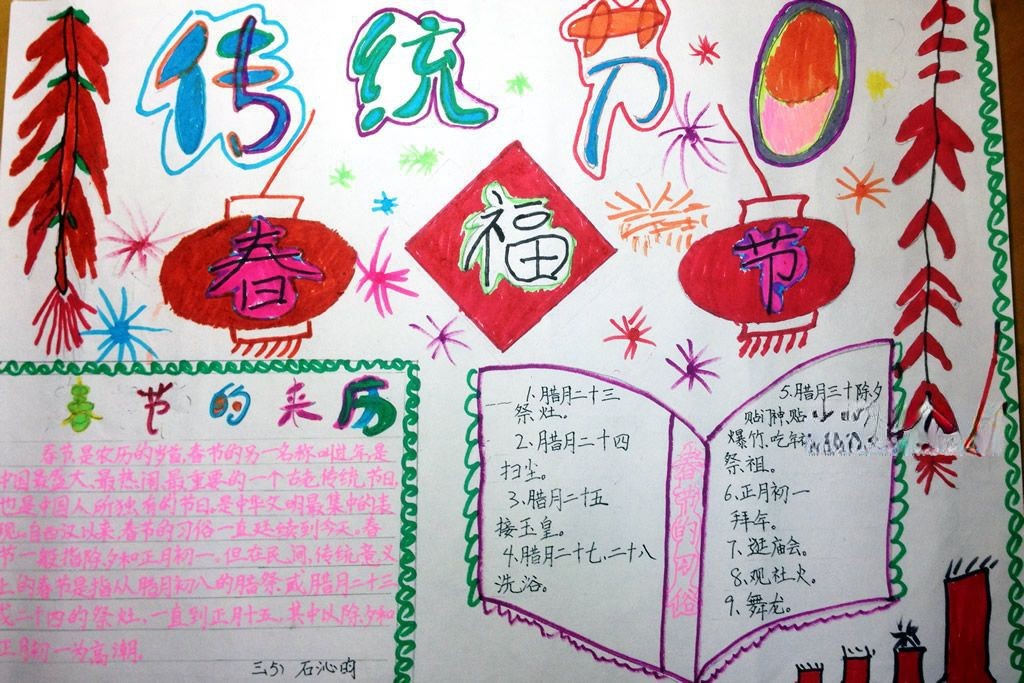 传统节日
春
福
节
春节的来历
春节是农历的岁首,春节的另一名称叫过年,是
中国最盛大、最热闹、最重要的一个古老传统节日,
也是中国人所独有的节日。是中华文明最集中的表
现。自西汉以来,春节的习俗一直延续到今天。春
节一般指除夕和正月初一。但在民间,传统意义
上的春节是指从腊月初八的腊祭或腊月二十三
或二十四的祭灶,一直到正月十五,其中以除夕和
正月初一为高潮。
三5) 石沁昀
1.腊月二十三
祭灶。
2.腊月二十四
扫尘。
3.腊月二十五
接玉皇。
4.腊月二十七、二十八
洗浴。
春节的习俗
5.腊月三十除夕
贴门神、贴
爆竹、吃年
祭祖。
6.正月初一
拜年。
7.逛庙会。
8.观社火。
9.舞龙。